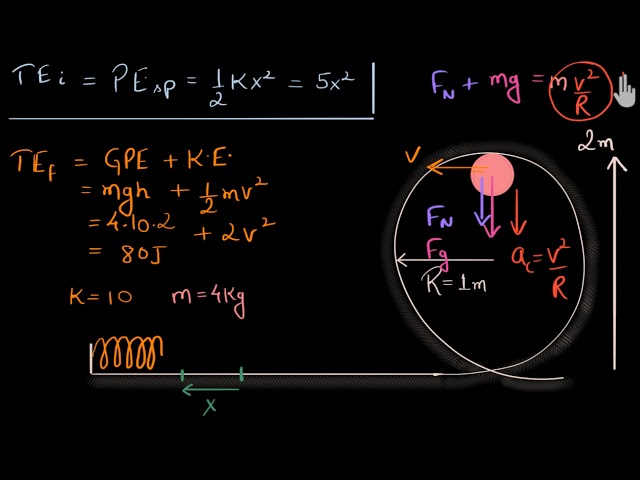 TEi = PEsp = 1/2 Kx² = 5x²
FN + mg = m v²/R
TEf = GPE + K.E.
= mgh + 1/2 mv²
= 4.10.2 + 2v²
= 80J
K = 10 m = 4Kg
2m
v
FN
Fg
ac = v²/R
R = 1m
x